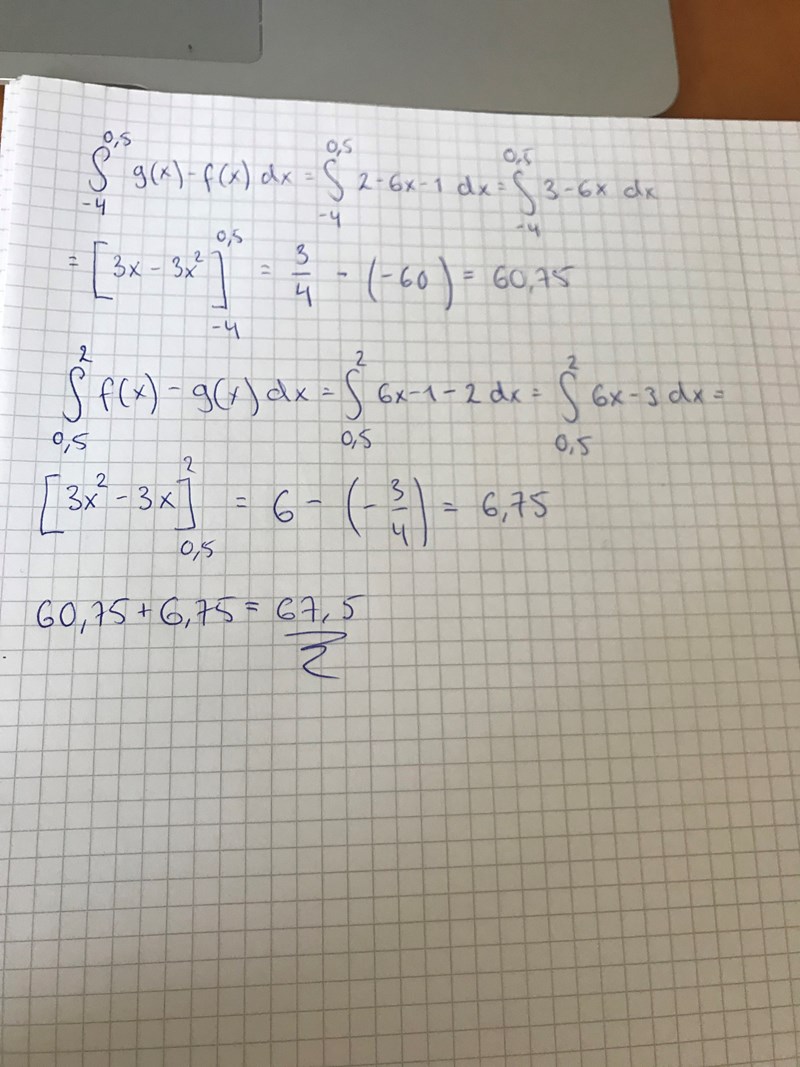 ∫_{-4}^{0,5} g(x) - f(x) dx = ∫_{-4}^{0,5} 2 - 6x - 1 dx = ∫_{-4}^{0,5} 3 - 6x dx
= [3x - 3x²]_{-4}^{0,5} = 3/4 - (-60) = 60,75
∫_{0,5}^{2} f(x) - g(x) dx = ∫_{0,5}^{2} 6x - 1 - 2 dx = ∫_{0,5}^{2} 6x - 3 dx =
[3x² - 3x]_{0,5}^{2} = 6 - (-3/4) = 6,75
60,75 + 6,75 = 67,5